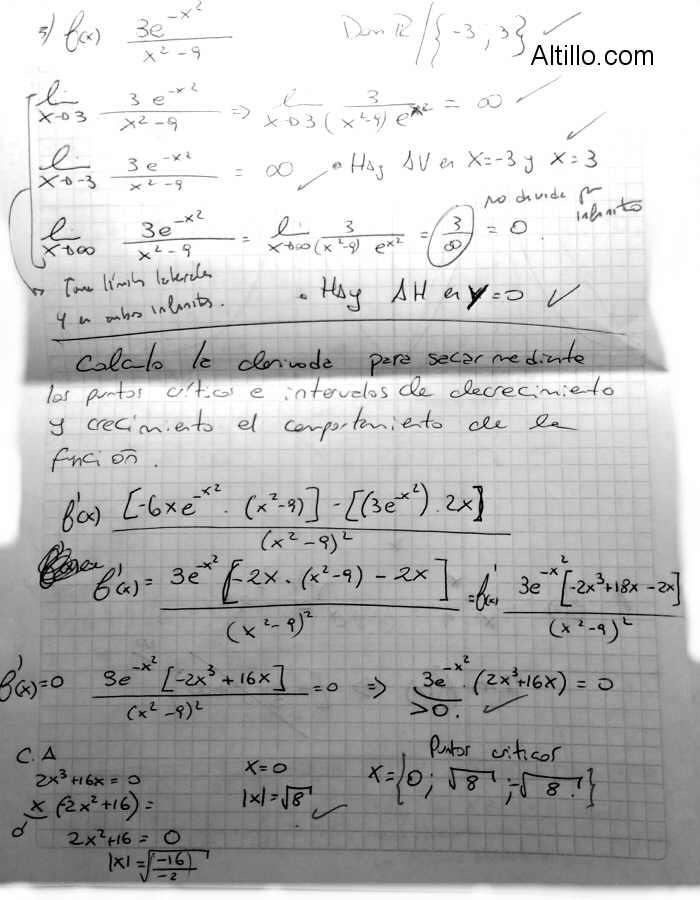 5) f(x) 3e^{-x²} / x²-9   Dom ℝ/{-3 ; 3} ✓
Altillo.com
li x→3 3e^{-x²} / x²-9 => li x→3 3 / (x²-9) e^{x²} = ∞ ✓
li x→-3 3e^{-x²} / x²-9 = ∞ ✓ • Hay AV en X=-3 y X=3 ✓
li x→∞ 3e^{-x²} / x²-9 = li x→∞ 3 / (x²-9) e^{x²} = 3/∞ = 0.
no divide por
infinito
Tome límites laterales
y en ambos infinitos.
• Hay AH en y=0 ✓
Calculo la derivada para sacar mediante
los puntos críticos e intervalos de decrecimiento
y crecimiento el comportamiento de la
función.
f'(x) [-6xe^{-x²} . (x²-9)] - [(3e^{-x²}) . 2x] / (x²-9)²
f'(x) = 3e^{-x²} [-2x . (x²-9) - 2x] / (x²-9)² = f'(x) 3e^{-x²} [-2x³+18x-2x] / (x²-9)²
f'(x)=0 3e^{-x²} [-2x³+16x] / (x²-9)² = 0 => 3e^{-x²} . (2x³+16x) = 0
>0. ✓
C.A
2x³+16x = 0
x (-2x²+16) =
2x²+16 = 0
|x| = √(-16/-2)
x=0
|x|=√8 ✓
Puntos críticos
x={0 ; √8 ; -√8}